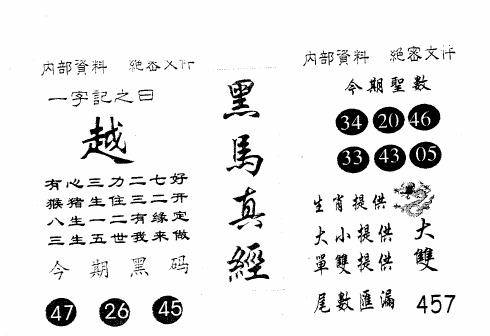 内部資料 絕密文件
一字記之曰
越
有心三力二七好
猴豬生住三二开
八生一二有缘定
三生五世我来做
今期黑码
47 26 45
黑馬真經
内部資料 絕密文件
今期聖數
34 20 46
33 43 05
生肖提供
大小提供 大
單雙提供 雙
尾數匯漏 457